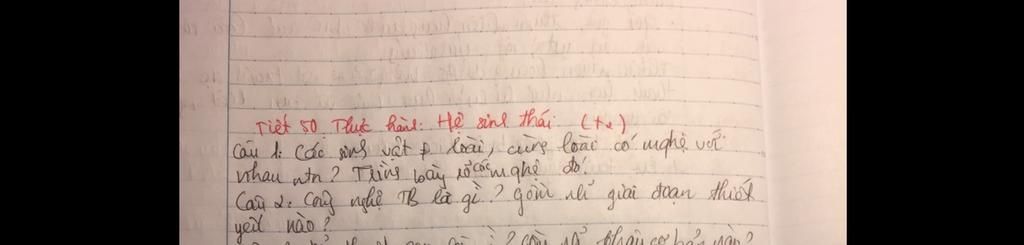 Tiết 50 Thực hành: Hệ sinh thái (t2)
Câu 1: Các sinh vật ≠ loài, cùng loài có mqhệ với
nhau ntn? Trình bày rõ các mqhệ đó!
Câu 2: Công nghệ TB là gì? Gồm n~ giai đoạn thiết
yếu nào?
là gì? cơ bản nào?